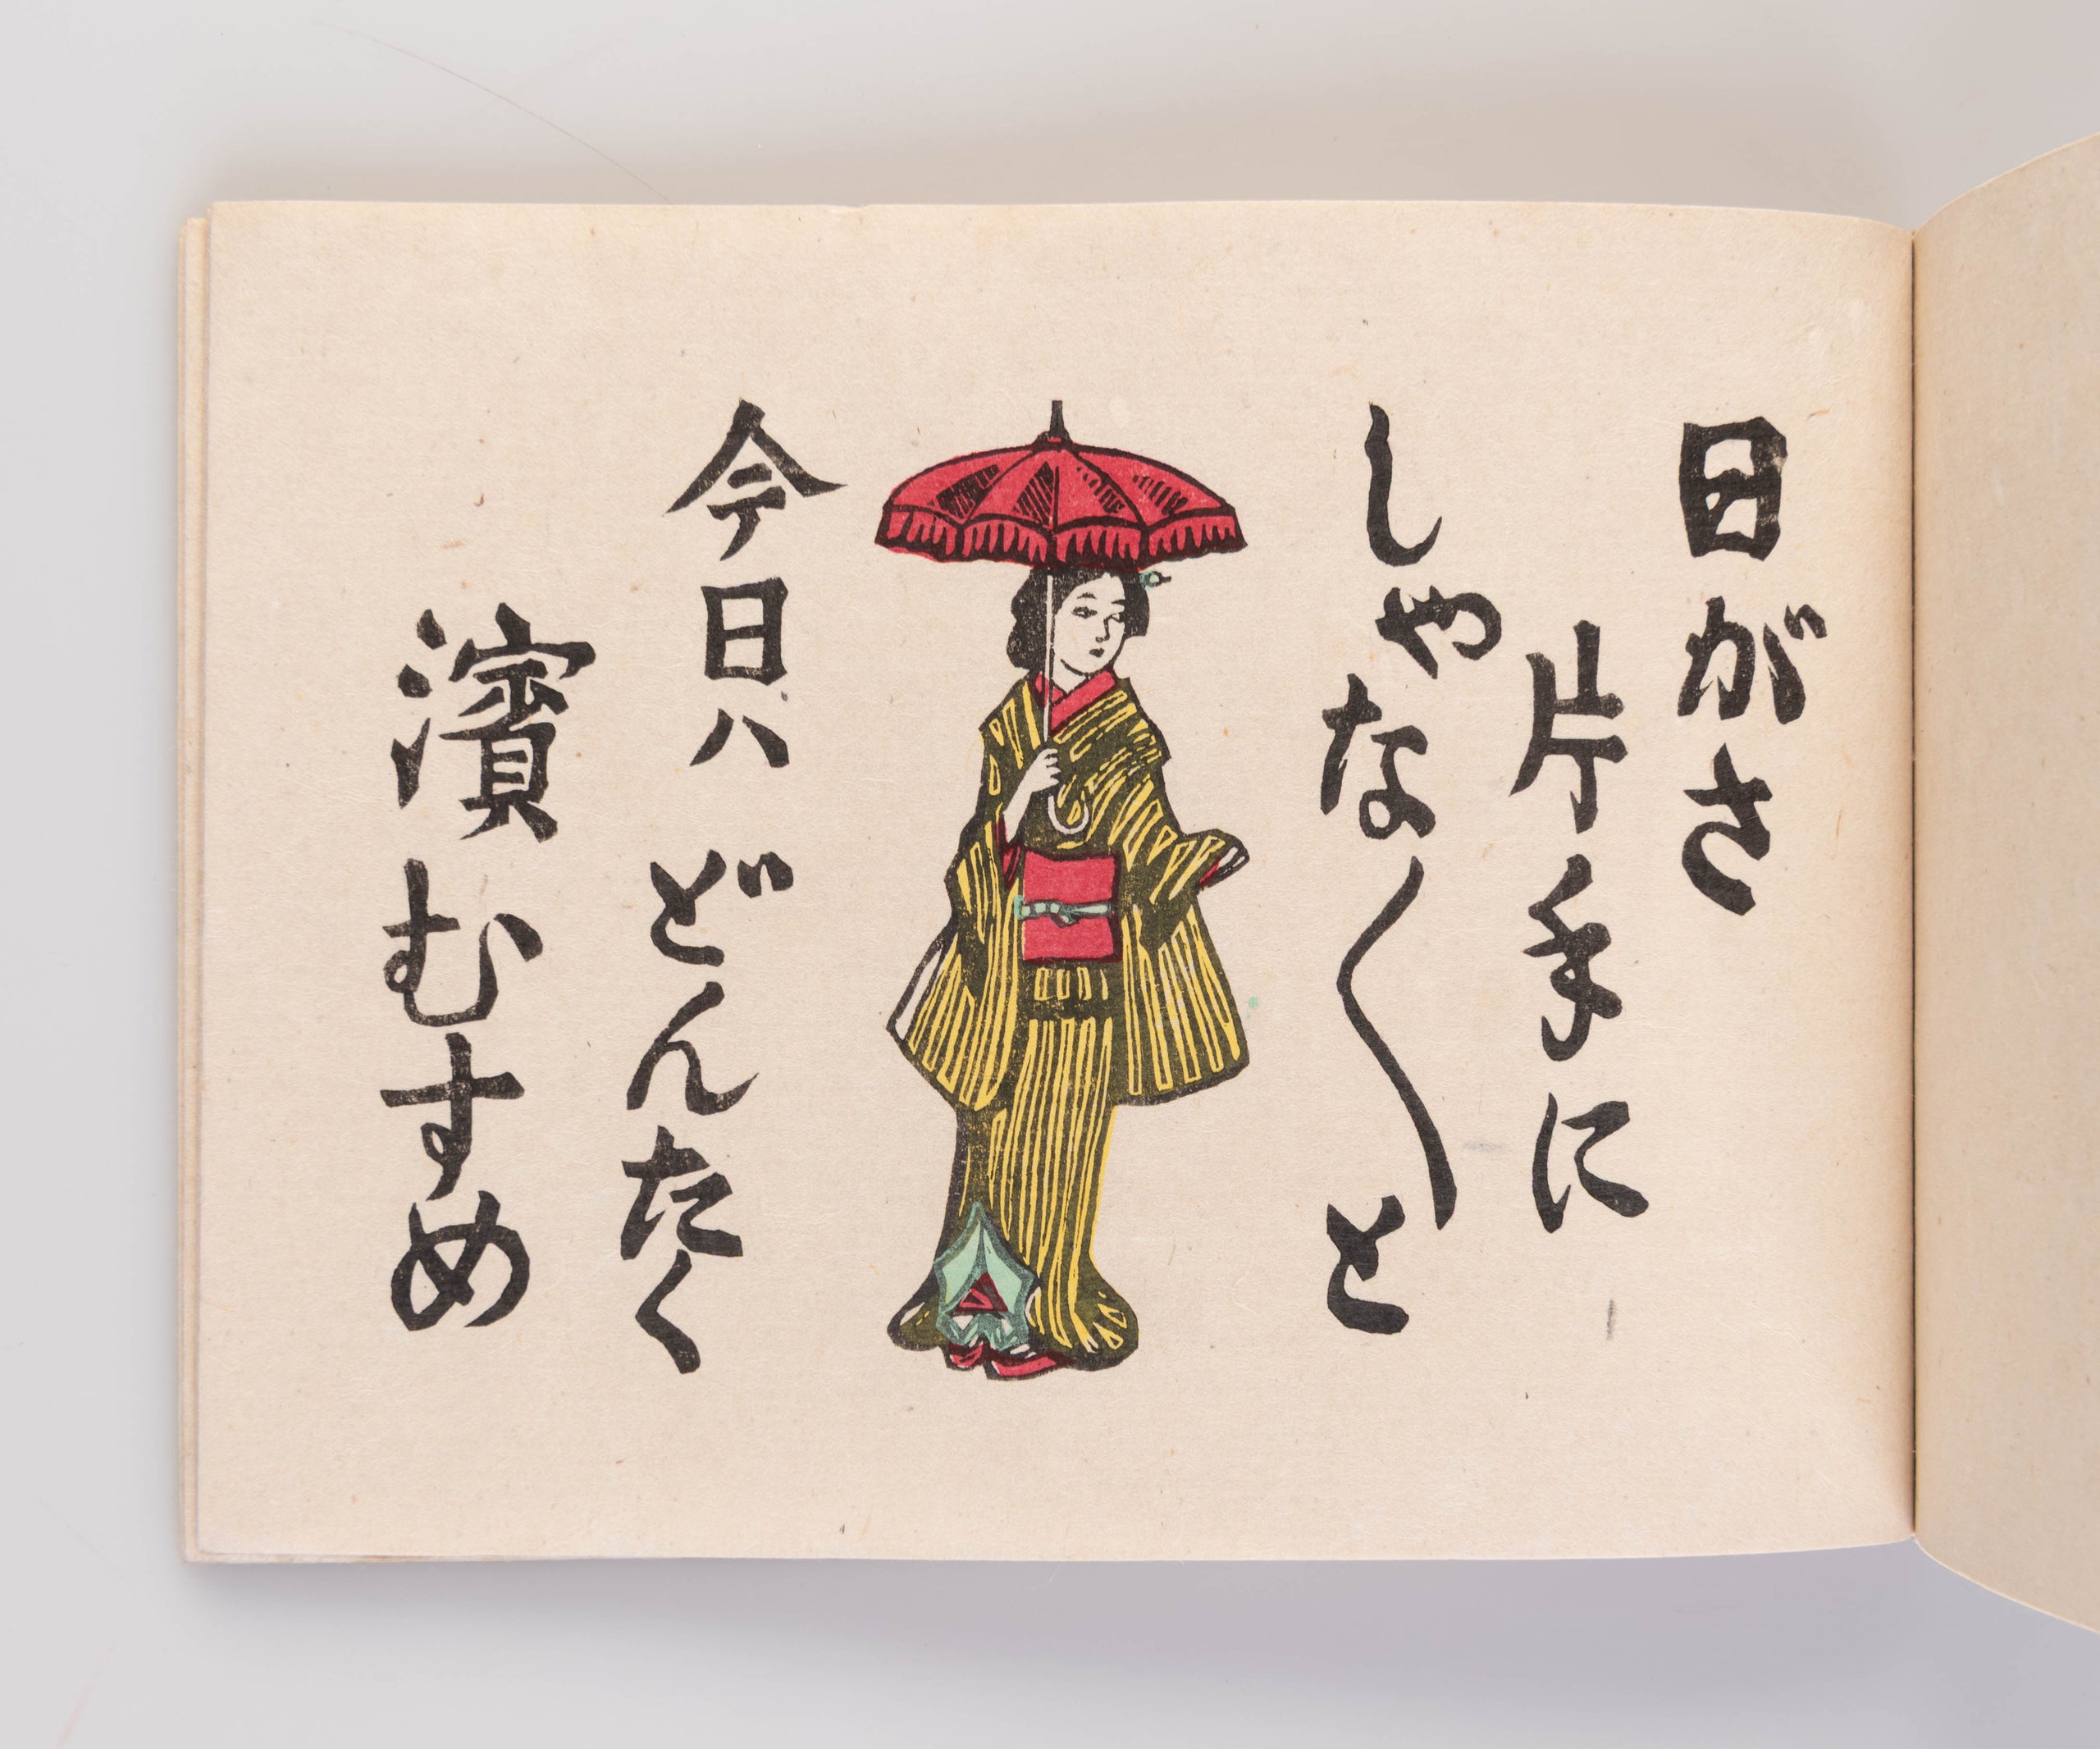 日がさ
片手に
しゃな〳〵と
今日ハどんたく
濱むすめ